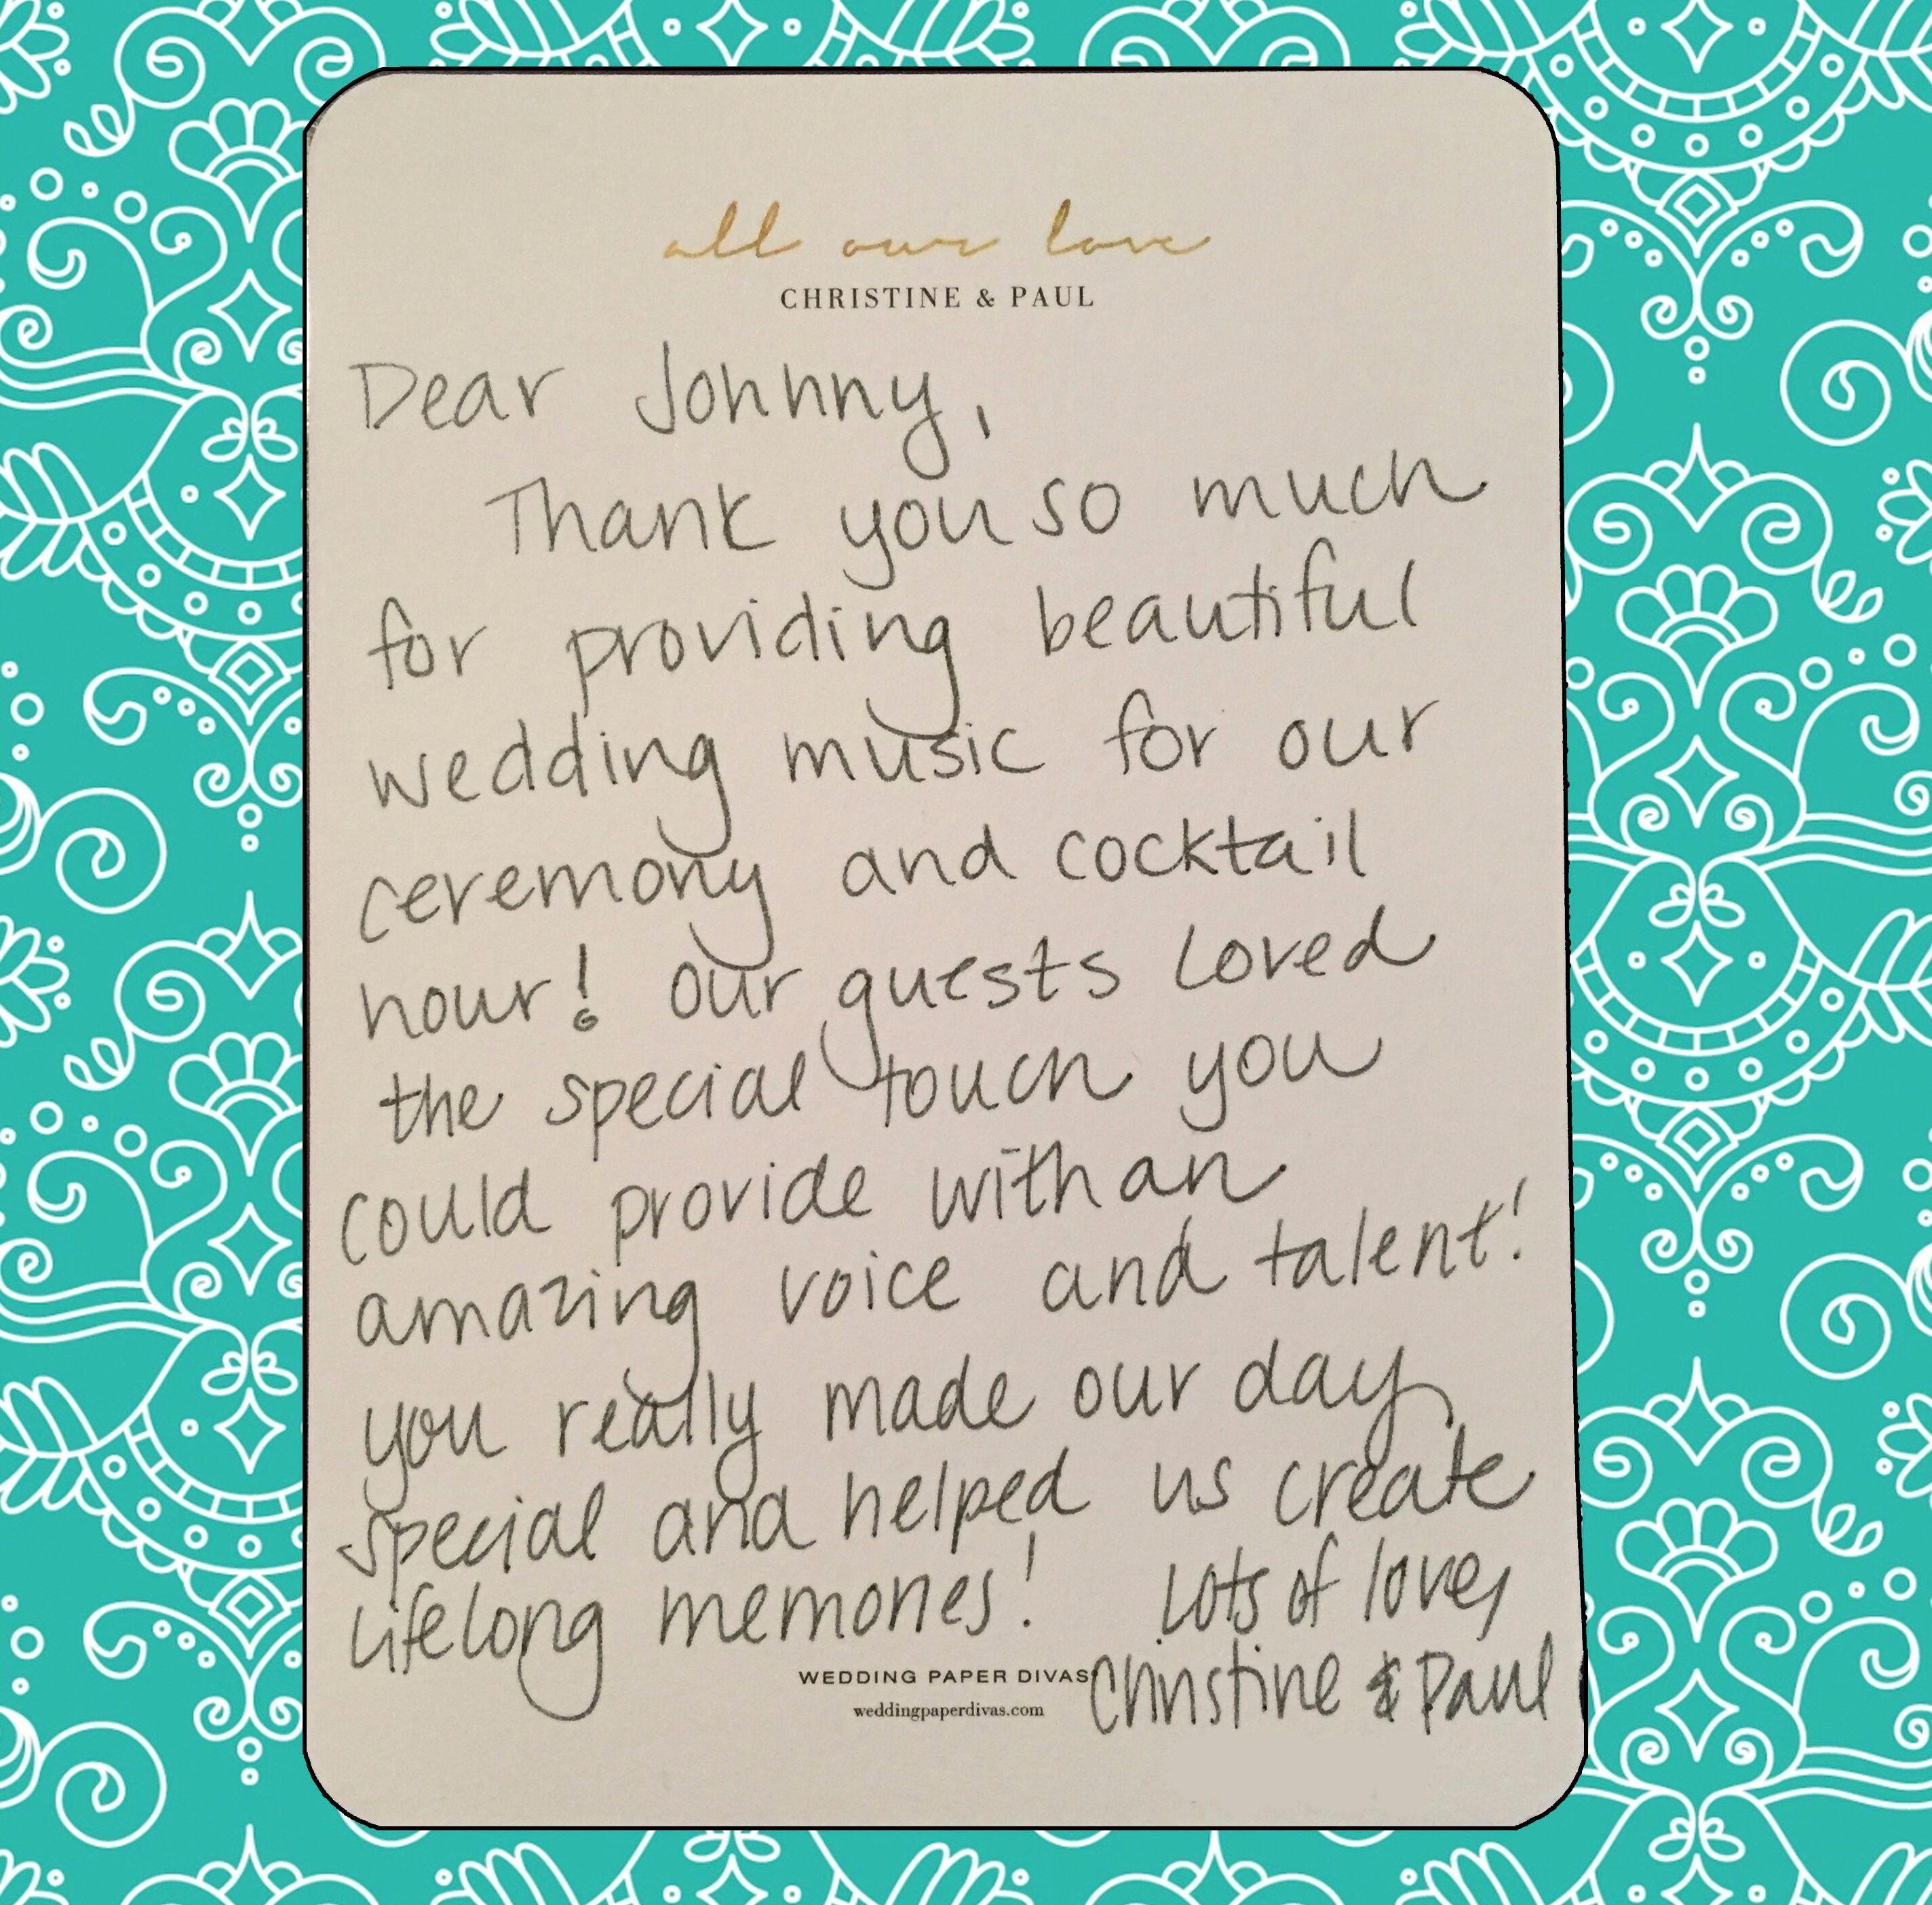 all our love
CHRISTINE & PAUL
Dear Johnny,
Thank you so much
for providing beautiful
wedding music for our
ceremony and cocktail
hour! Our guests loved
the special touch you
could provide with an
amazing voice and talent!
you really made our day
special and helped us create
lifelong memories! Lots of love,
WEDDING PAPER DIVAS Christine & Paul
weddingpaperdivas.com